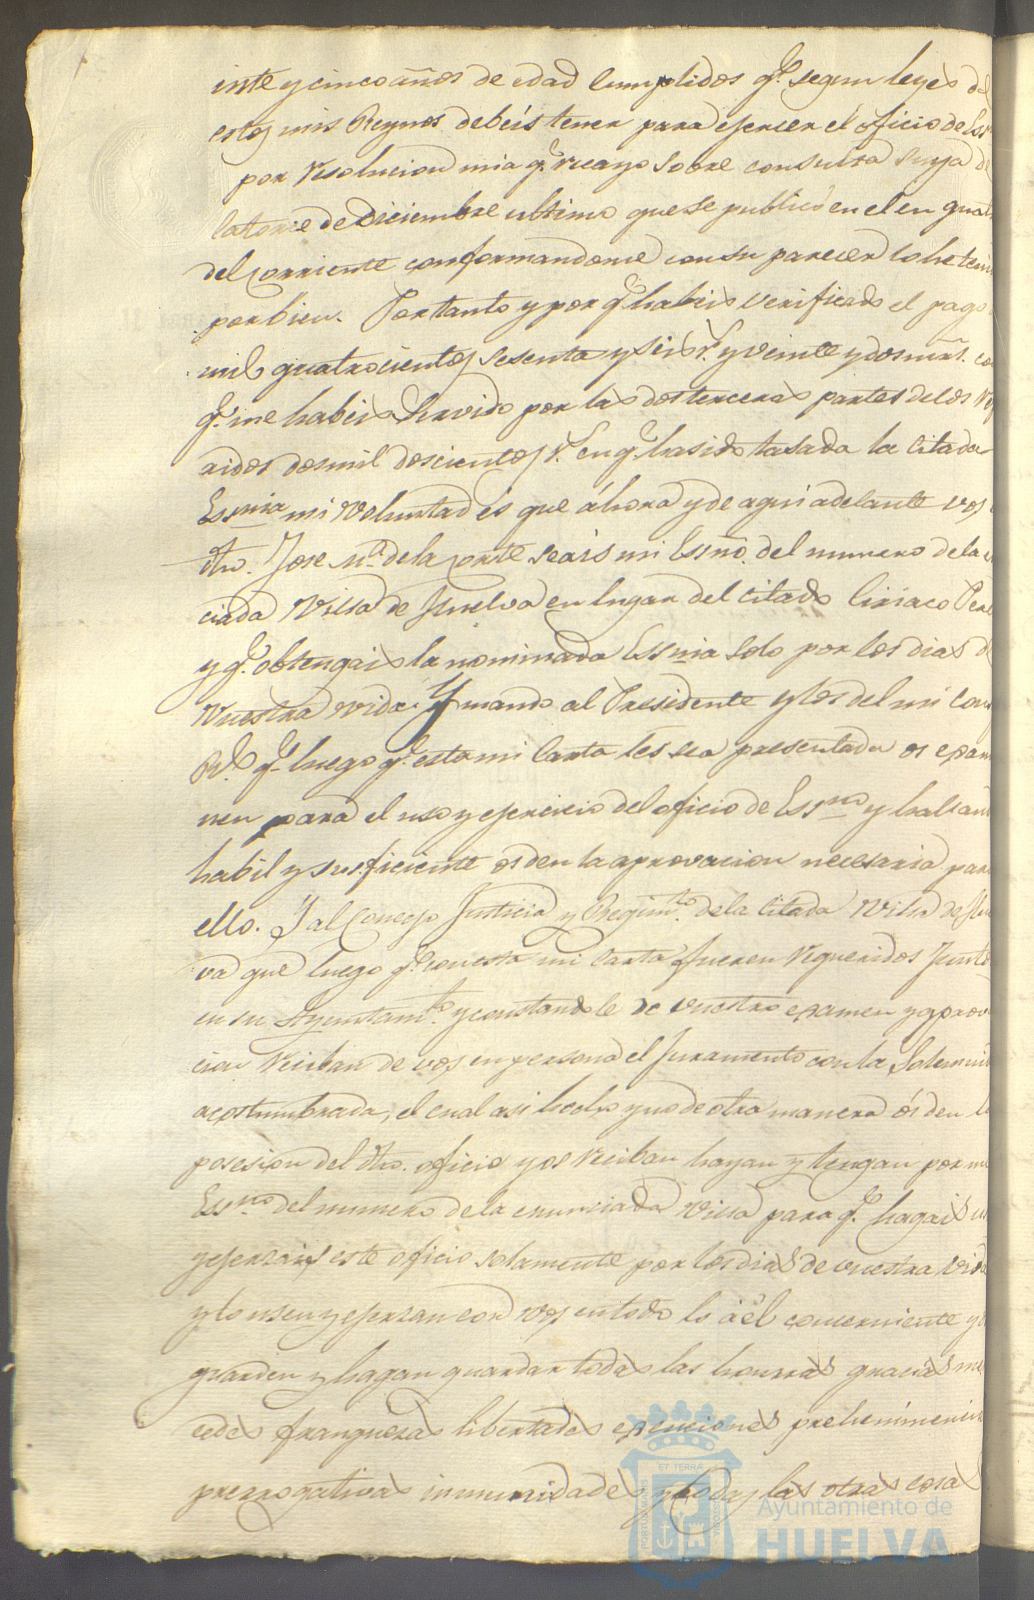 inte y cinco años de edad Cumplidos q.e segun leyes de
estos mis Reynos debeis tener para ejercer el oficio de Ess
por resolucion mia q.e recayo sobre consulta suya de
Catorce de Diciembre ultimo que se publicó en el
del corriente conformandome con su parecer lo he teni
por bien. Por tanto y por q.e habeis verificado el pago
mil quatrocientos sesenta y seis r.s y veinte y dos mrs. co
q.e me habeis servido por las dos terceras partes de los
ridos dos mil doscientos r.s en q.e ha sido tasada la Citada
Essnia mi Voluntad és que áhora y de aqui adelante vos
dho. Jose M.a de la Corte seais mi Essno. del numero de la
ciada Villa de Huelva en lugar del Citado Ciriaco Pere
y q.e obtengais la nominada Essnia solo por los dias d
Vuestra vida. Y mando al Presidente y los del mi Con
R.l q.e luego q.e esta mi Carta les sea presentada os exami
nen para el uso y ejercicio del oficio de Essno y halland
habil y suficiente os den la aprovacion necesaria para
ello. Y al Concejo Justicia y Regim.to de la Citada Villa de Huel
va que luego q.e con esta mi Carta fueren requeridos Juntos
en su Ayuntam.to y constandole de vuestro examen y aprova
cion reciban de vos en persona el Juramento con la Solemnid
acostumbrada, el cual asi hecho y no de otra manera ós den la
posesion del dho. oficio y os reciban hayan y tengan por mi
Essno del numero de la enunciada Villa para q.e hagais
y ejerzais este oficio solamente por los dias de vuestra vida
y lo usen y ejerzan con vos en todo lo á él concerniente y
guarden y hagan guardar todas las honrras gracias mer
cedes franquezas libertades exenciones preheminencias
prerrogativas inmunidades y todas las otras cosas
ET TERRÆ
Ayuntamiento de
HUELVA